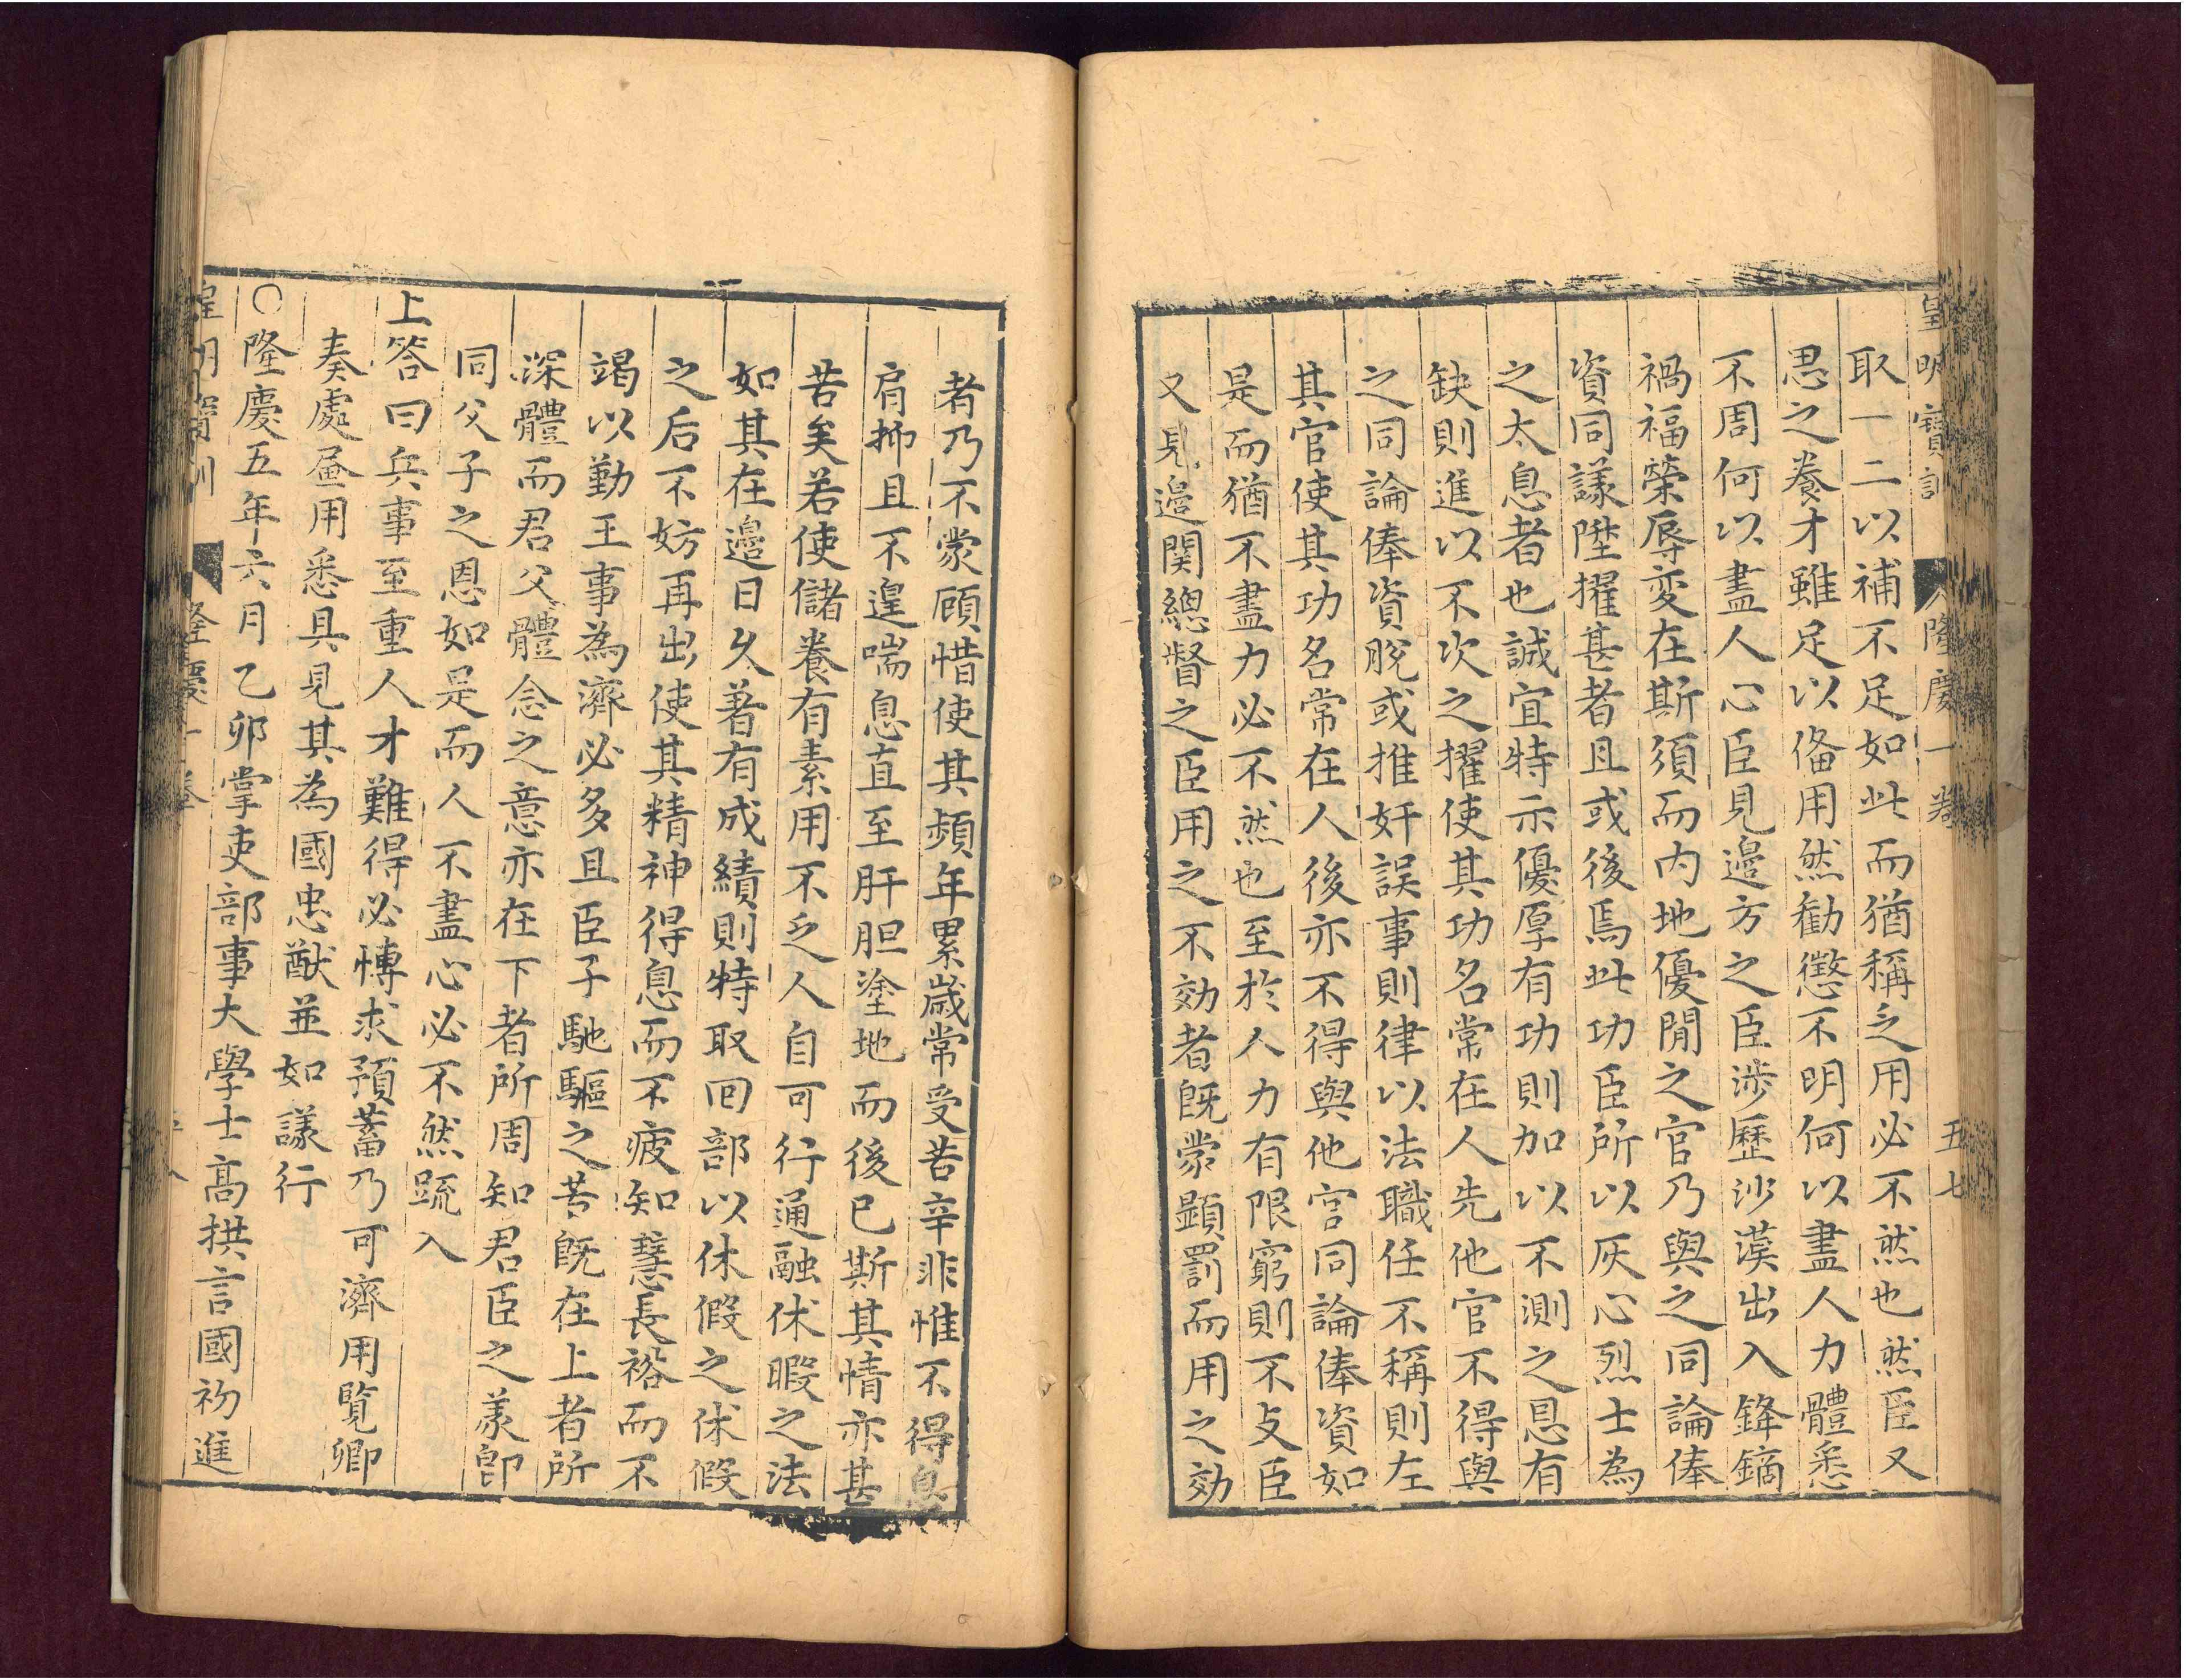 皇明寶訓 隆慶一卷 五七
取一二以補不足如此而猶稱乏用必不然也然臣又
思之養才雖足以俻用然勸懲不明何以盡人力體悉
不周何以盡人心臣見邉方之臣涉歷沙漠出入鋒鏑
禍福榮辱变在斯須而内地優閒之官乃與之同論俸
資同議陞擢甚者且或後焉此功臣所以灰心烈士為
之太息者也誠宜特示優厚有功則加以不測之恩有
缺則進以不次之擢使其功名常在人先他官不得與
之同論俸資脫或推奸誤事則律以法職任不稱則左
其官使其功名常在人後亦不得與他官同論俸資如
是而猶不盡力必不然也至於人力有限窮則不支臣
又見邉関總督之臣用之不効者既蒙顯罰而用之効
者乃不蒙顧惜使其頻年累歲常受苦辛非惟不得息
肩抑且不遑喘息直至肝胆塗地而後已斯其情亦甚
苦矣若使儲養有素用不乏人自可行通融休暇之法
如其在邉日久著有成績則特取回部以休假之休假
之后不妨再出使其精神得息而不疲知慧長裕而不
竭以勤王事為濟必多且臣子馳驅之苦既在上者所
深體而君父體念之意亦在下者所周知君臣之義即
同父子之恩如是而人不盡心必不然䟽入
上答曰兵事至重人才難得必愽求預蓄乃可濟用覧卿
奏處畫用悉具見其為國忠猷並如議行
○隆慶五年六月乙卯掌吏部事大學士高拱言國初進
皇明寶訓 隆慶一卷 五八